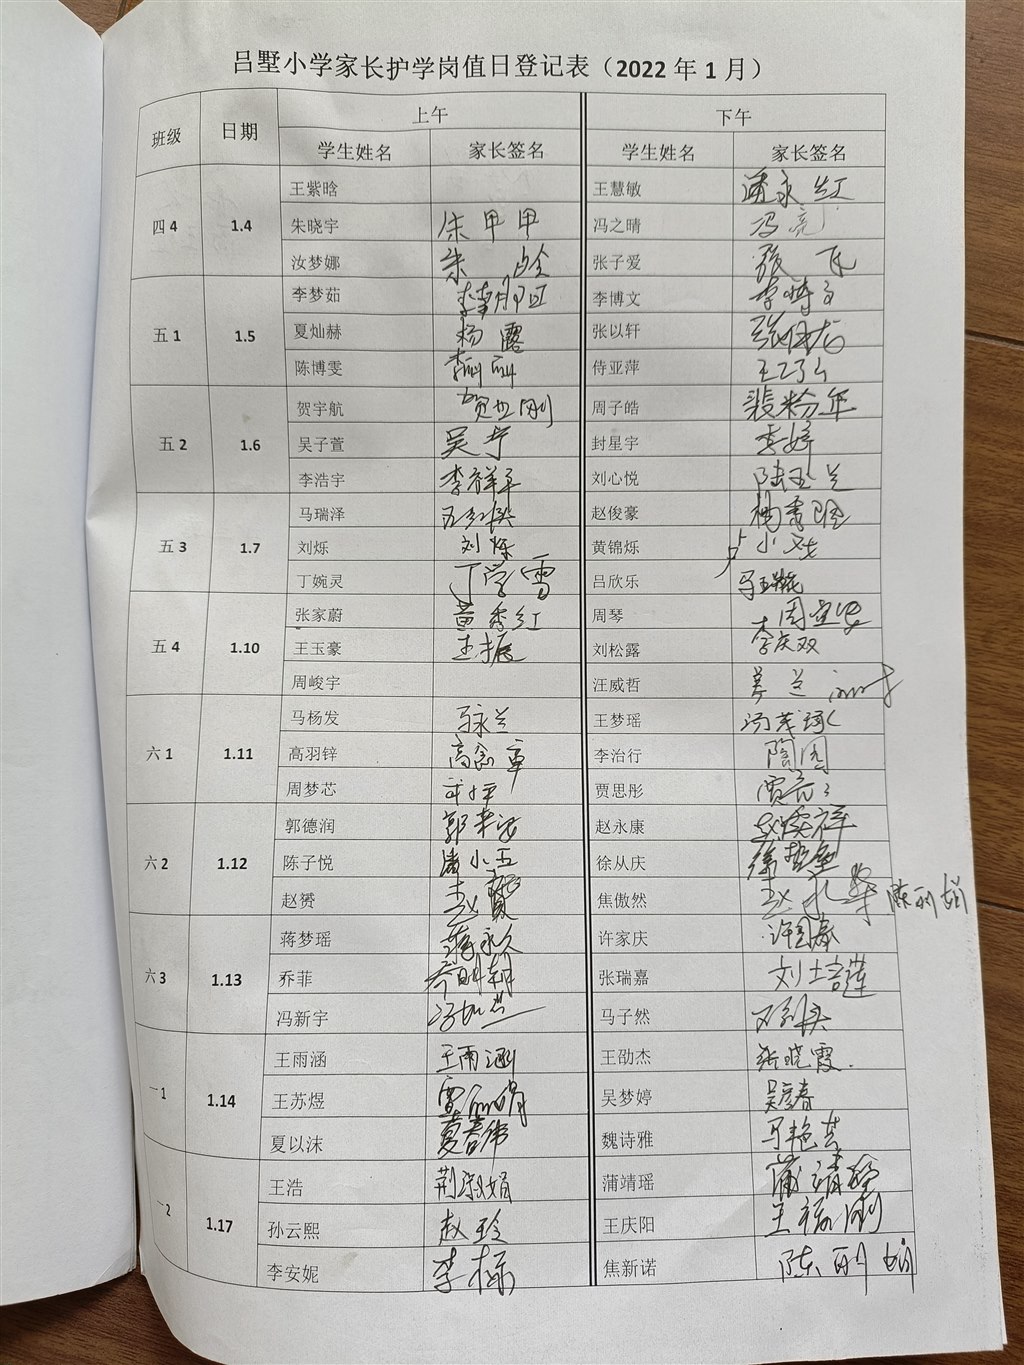 吕墅小学家长护学岗值日登记表（2022年1月）
班级 日期 上午 下午
学生姓名 家长签名 学生姓名 家长签名
王紫晗 王慧敏 潘永红
四4 1.4 朱晓宇 朱甲甲 冯之晴 冯亮
汝梦娜 朱 张子爱 张
李梦茹 李博文 李博文
五1 1.5 夏灿赫 杨露 张以轩
陈博雯 侍亚萍
贺宇航 贺 刚 周子皓 裴粉年
五2 1.6 吴子萱 吴宁 封星宇 李婷
李浩宇 李祥平 刘心悦 陆玉兰
马瑞泽 赵俊豪
五3 1.7 刘烁 刘烁 黄锦烁
丁婉灵 丁学雪 吕欣乐
张家蔚 黄秀红 周琴
五4 1.10 王玉豪 王振 刘松露 李庆双
周峻宇 汪威哲
马杨发 马永兰 王梦瑶
六1 1.11 高羽锌 高 章 李治行 陶园
周梦芯 贾思彤
郭德润 郭 赵永康 赵 祥
六2 1.12 陈子悦 潘小五 徐从庆 徐
赵赟 赵赟 焦傲然 赵 陈丽娟
蒋梦瑶 蒋永久 许家庆 许国春
六3 1.13 乔菲 乔明朝 张瑞嘉 刘士莲
冯新宇 冯 兰 马子然
王雨涵 王雨涵 王劭杰 张晓霞.
一1 1.14 王苏煜 吴梦婷 吴彦春
夏以沫 夏春伟 魏诗雅 马艳芸
王浩 荆淑娟 蒲靖瑶 蒲靖瑶
一2 1.17 孙云熙 赵玲 王庆阳 王 刚
李安妮 李标 焦新诺 陈丽娟